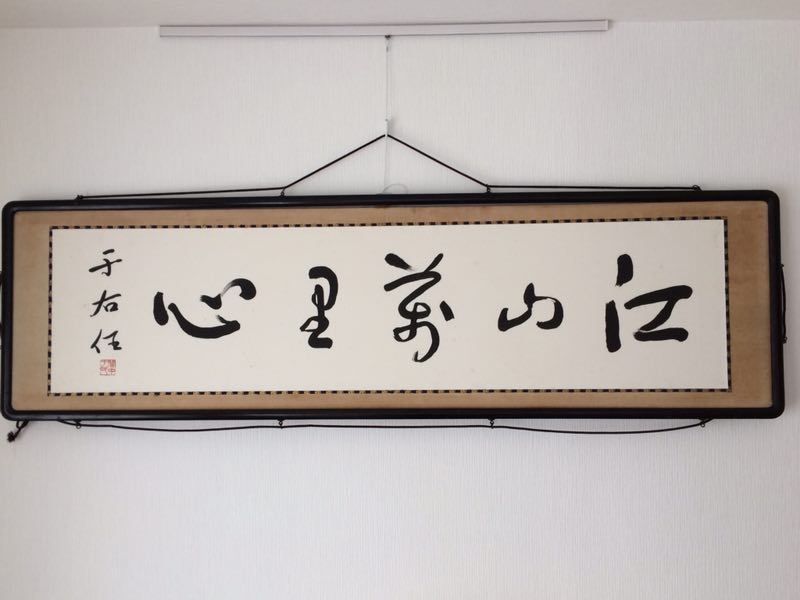 江山萬里心
于右任